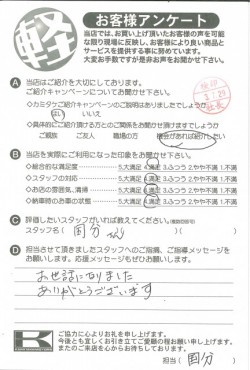 軽
お客様アンケート
当店では、お買い上げ頂いたお客様の声を可能
な限り現場に反映し、お客様により良い商品と
サービスを提供する事に努めています。
大変お手数ですが是非お声をお聞かせ下さい。
A 当店はご紹介を大切にしております。
ご紹介キャンペーンについてお聞かせ下さい。
カミタケご紹介キャンペーンのご説明はありましたでしょうか
はい いいえ
具体的にご紹介頂ける方とのご関係をお聞かせ頂けますでしょうか
ご親族 ご友人 職場の方 機会があれば紹介したい
B 当店を実際にご利用になった印象をお聞かせ下さい。
総合的な満足度 5.大満足 4.満足 3.ふつう 2.やや不満 1.不満
スタッフの対応 5.大満足 4.満足 3.ふつう 2.やや不満 1.不満
お店の雰囲気、清掃 5.大満足 4.満足 3.ふつう 2.やや不満 1.不満
納車時のお車の状態 5.大満足 4.満足 3.ふつう 2.やや不満 1.不満
C 評価したいスタッフがいれば教えてください。
スタッフ名( 国分さん )
D 担当させて頂きましたスタッフへのご指摘、ご指導メッセージを
お願いします。応援メッセージもぜひお願いします。
お世話になりました
ありがとうございます
K
ご協力に心よりお礼を申し上げます。
今後とも宜しくお引き立てご愛顧の程お願い申し上げます。
またのご来店を心からお待ちしております。
担当( 国分 )